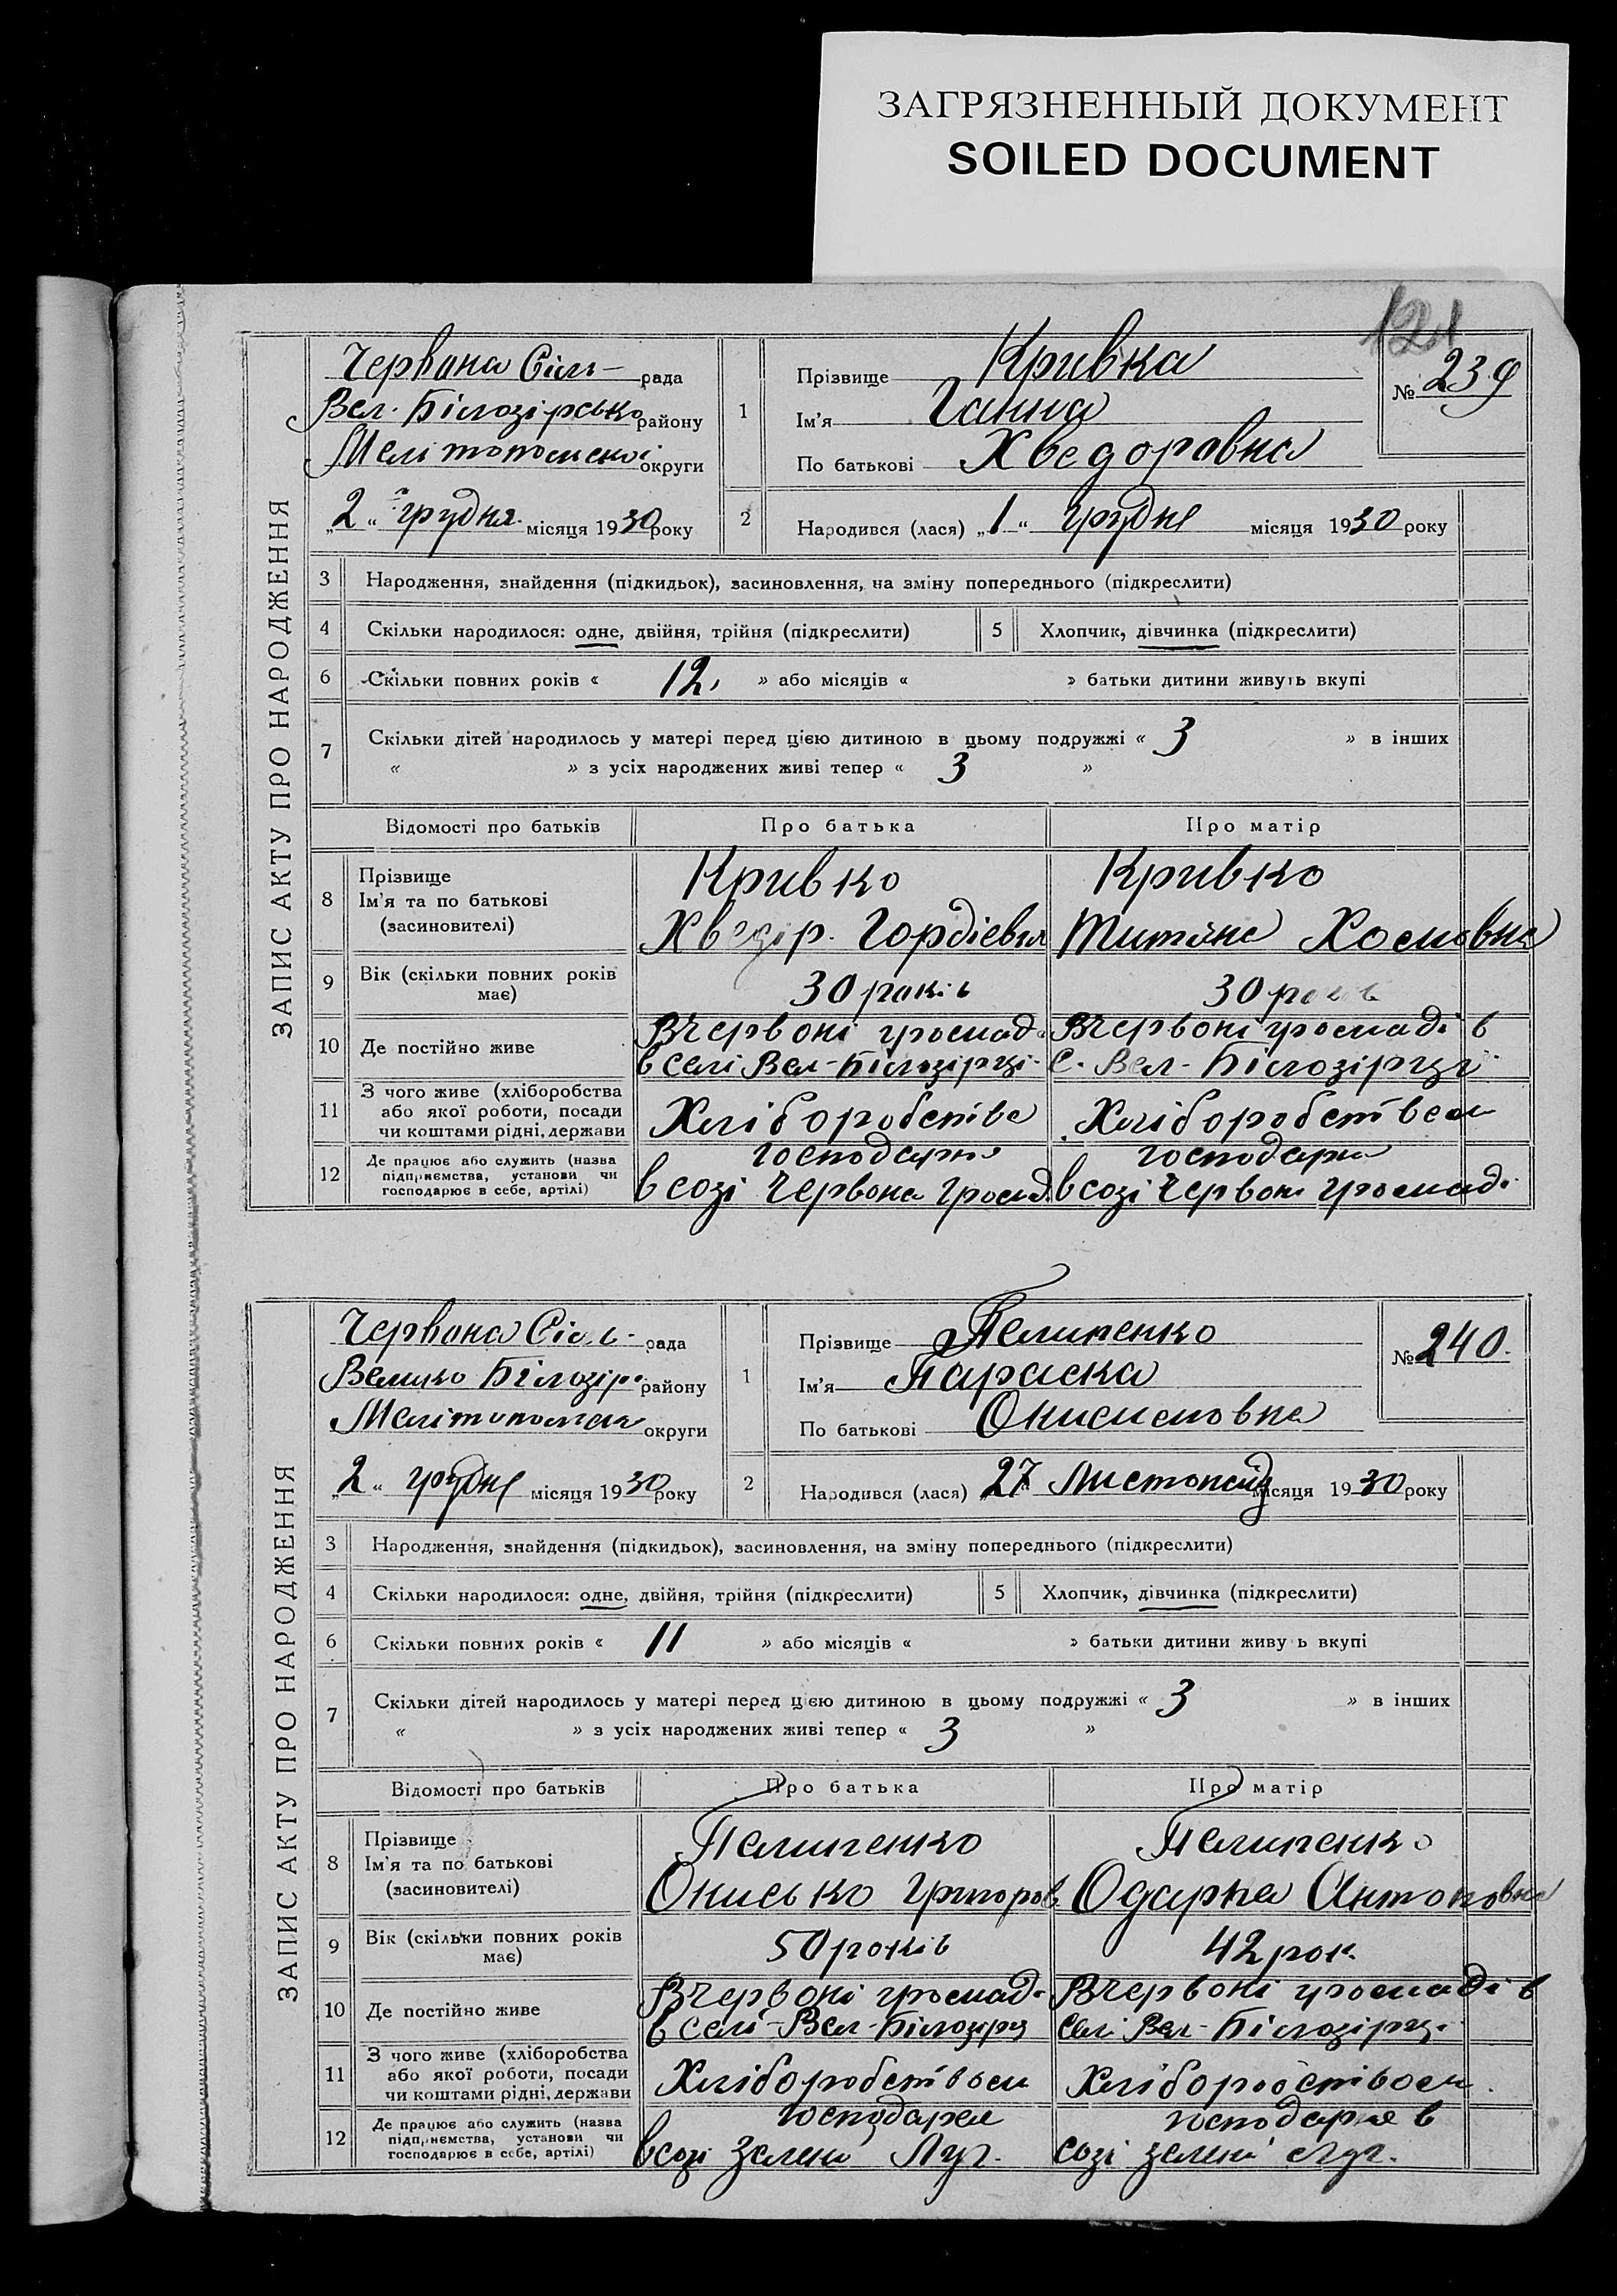 ЗАГРЯЗНЕННЫЙ ДОКУМЕНТ
SOILED DOCUMENT
121
ЗАПИС АКТУ ПРО НАРОДЖЕННЯ
Червона Сіль- рада
Вел. Білозірсько району
Мелітопольської округи
„2“ грудня місяця 1930 року
1 Прізвище Кривка
Ім'я Ганна
По батькові Хведоровна
№ 239
2 Народився (лася) „1“ грудня місяця 1930 року
3 Народження, знайдення (підкидьок), засиновлення, на зміну попереднього (підкреслити)
4 Скільки народилося: одне, двійня, трійня (підкреслити) 5 Хлопчик, дівчинка (підкреслити)
6 Скільки повних років « 12, » або місяців « » батьки дитини живуть вкупі
7 Скільки дітей народилось у матері перед цією дитиною в цьому подружжі « 3 » в інших
« » з усіх народжених живі тепер « 3 »
Відомості про батьків Про батька Про матір
8 Прізвище
Ім'я та по батькові
(засиновителі)
Кривко
Хведір Гордієвич
Кривко
Титяна Хомовна
9 Вік (скільки повних років
має)
30 років
30 років
10 Де постійно живе
В червоні громаді
в селі Вел-Білозірці
В червоні громаді в
с. Вел-Білозірці
11 З чого живе (хліборобства
або якої роботи, посади
чи коштами рідні, держави
Хліборобства
Хліборобством
12 Де працює або служить (назва
підприємства, установи чи
господарює в себе, артілі)
господарює
в созі Червона Громад.
господарює
в созі Червоні громаді
ЗАПИС АКТУ ПРО НАРОДЖЕННЯ
Червона Сіль- рада
Велико Білозір. району
округи
„2“ грудня місяця 1930 року
1 Прізвище Пелипенко
Ім'я Параска
По батькові Онисимовна
№ 240.
2 Народився (лася) „27“ Листопад місяця 1930 року
3 Народження, знайдення (підкидьок), засиновлення, на зміну попереднього (підкреслити)
4 Скільки народилося: одне, двійня, трійня (підкреслити) 5 Хлопчик, дівчинка (підкреслити)
6 Скільки повних років « 11 » або місяців « » батьки дитини живу ь вкупі
7 Скільки дітей народилось у матері перед цією дитиною в цьому подружжі « 3 » в інших
« » з усіх народжених живі тепер « 3 »
Відомості про батьків Про батька Про матір
8 Прізвище
Ім'я та по батькові
(засиновителі)
Пелипенко
Онисько Григоров
Пелипенко
Одарка Антоновна
9 Вік (скільки повних років
має)
50 років
42 рок.
10 Де постійно живе
В червоні громаді
в селі-Вел-Білозірц
В червоні громаді в
селі Вел-Білозірц.
11 З чого живе (хліборобства
або якої роботи, посади
чи коштами рідні, держави
Хліборобством
Хліборобством
12 Де працює або служить (назва
підприємства, установи чи
господарює в себе, артілі)
господарює
в созі Зелені Луг.
господарює в
созі зелені луг.